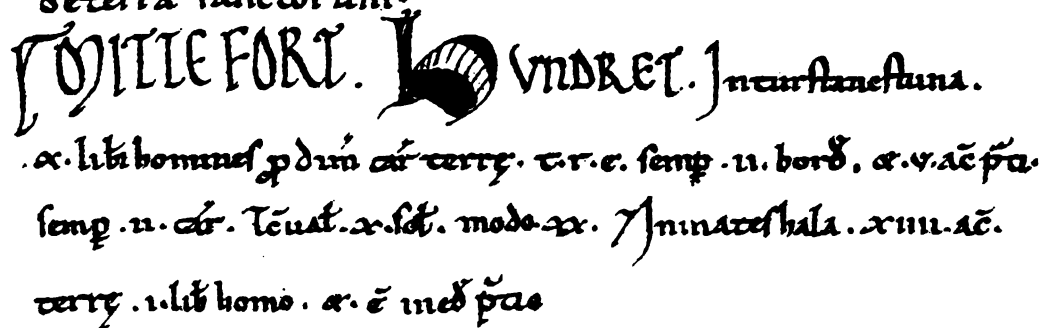 de terra sanctorum.
SMITTEFORT. HVNDRET. In turstanestuna.
.x. lib̄i homines ꝑ dim̄ car̄ terrę. t.r.e. semꝑ .ii. bord̄. &.v. ac̄ p̄ti.
semꝑ .ii. car̄. Tc̄ ual̄.x.sol̄. modo.xx. In inateshala.xiiii.ac̄.
terrę.i.lib̄ homo. &.ē in eod̄ p̄tio